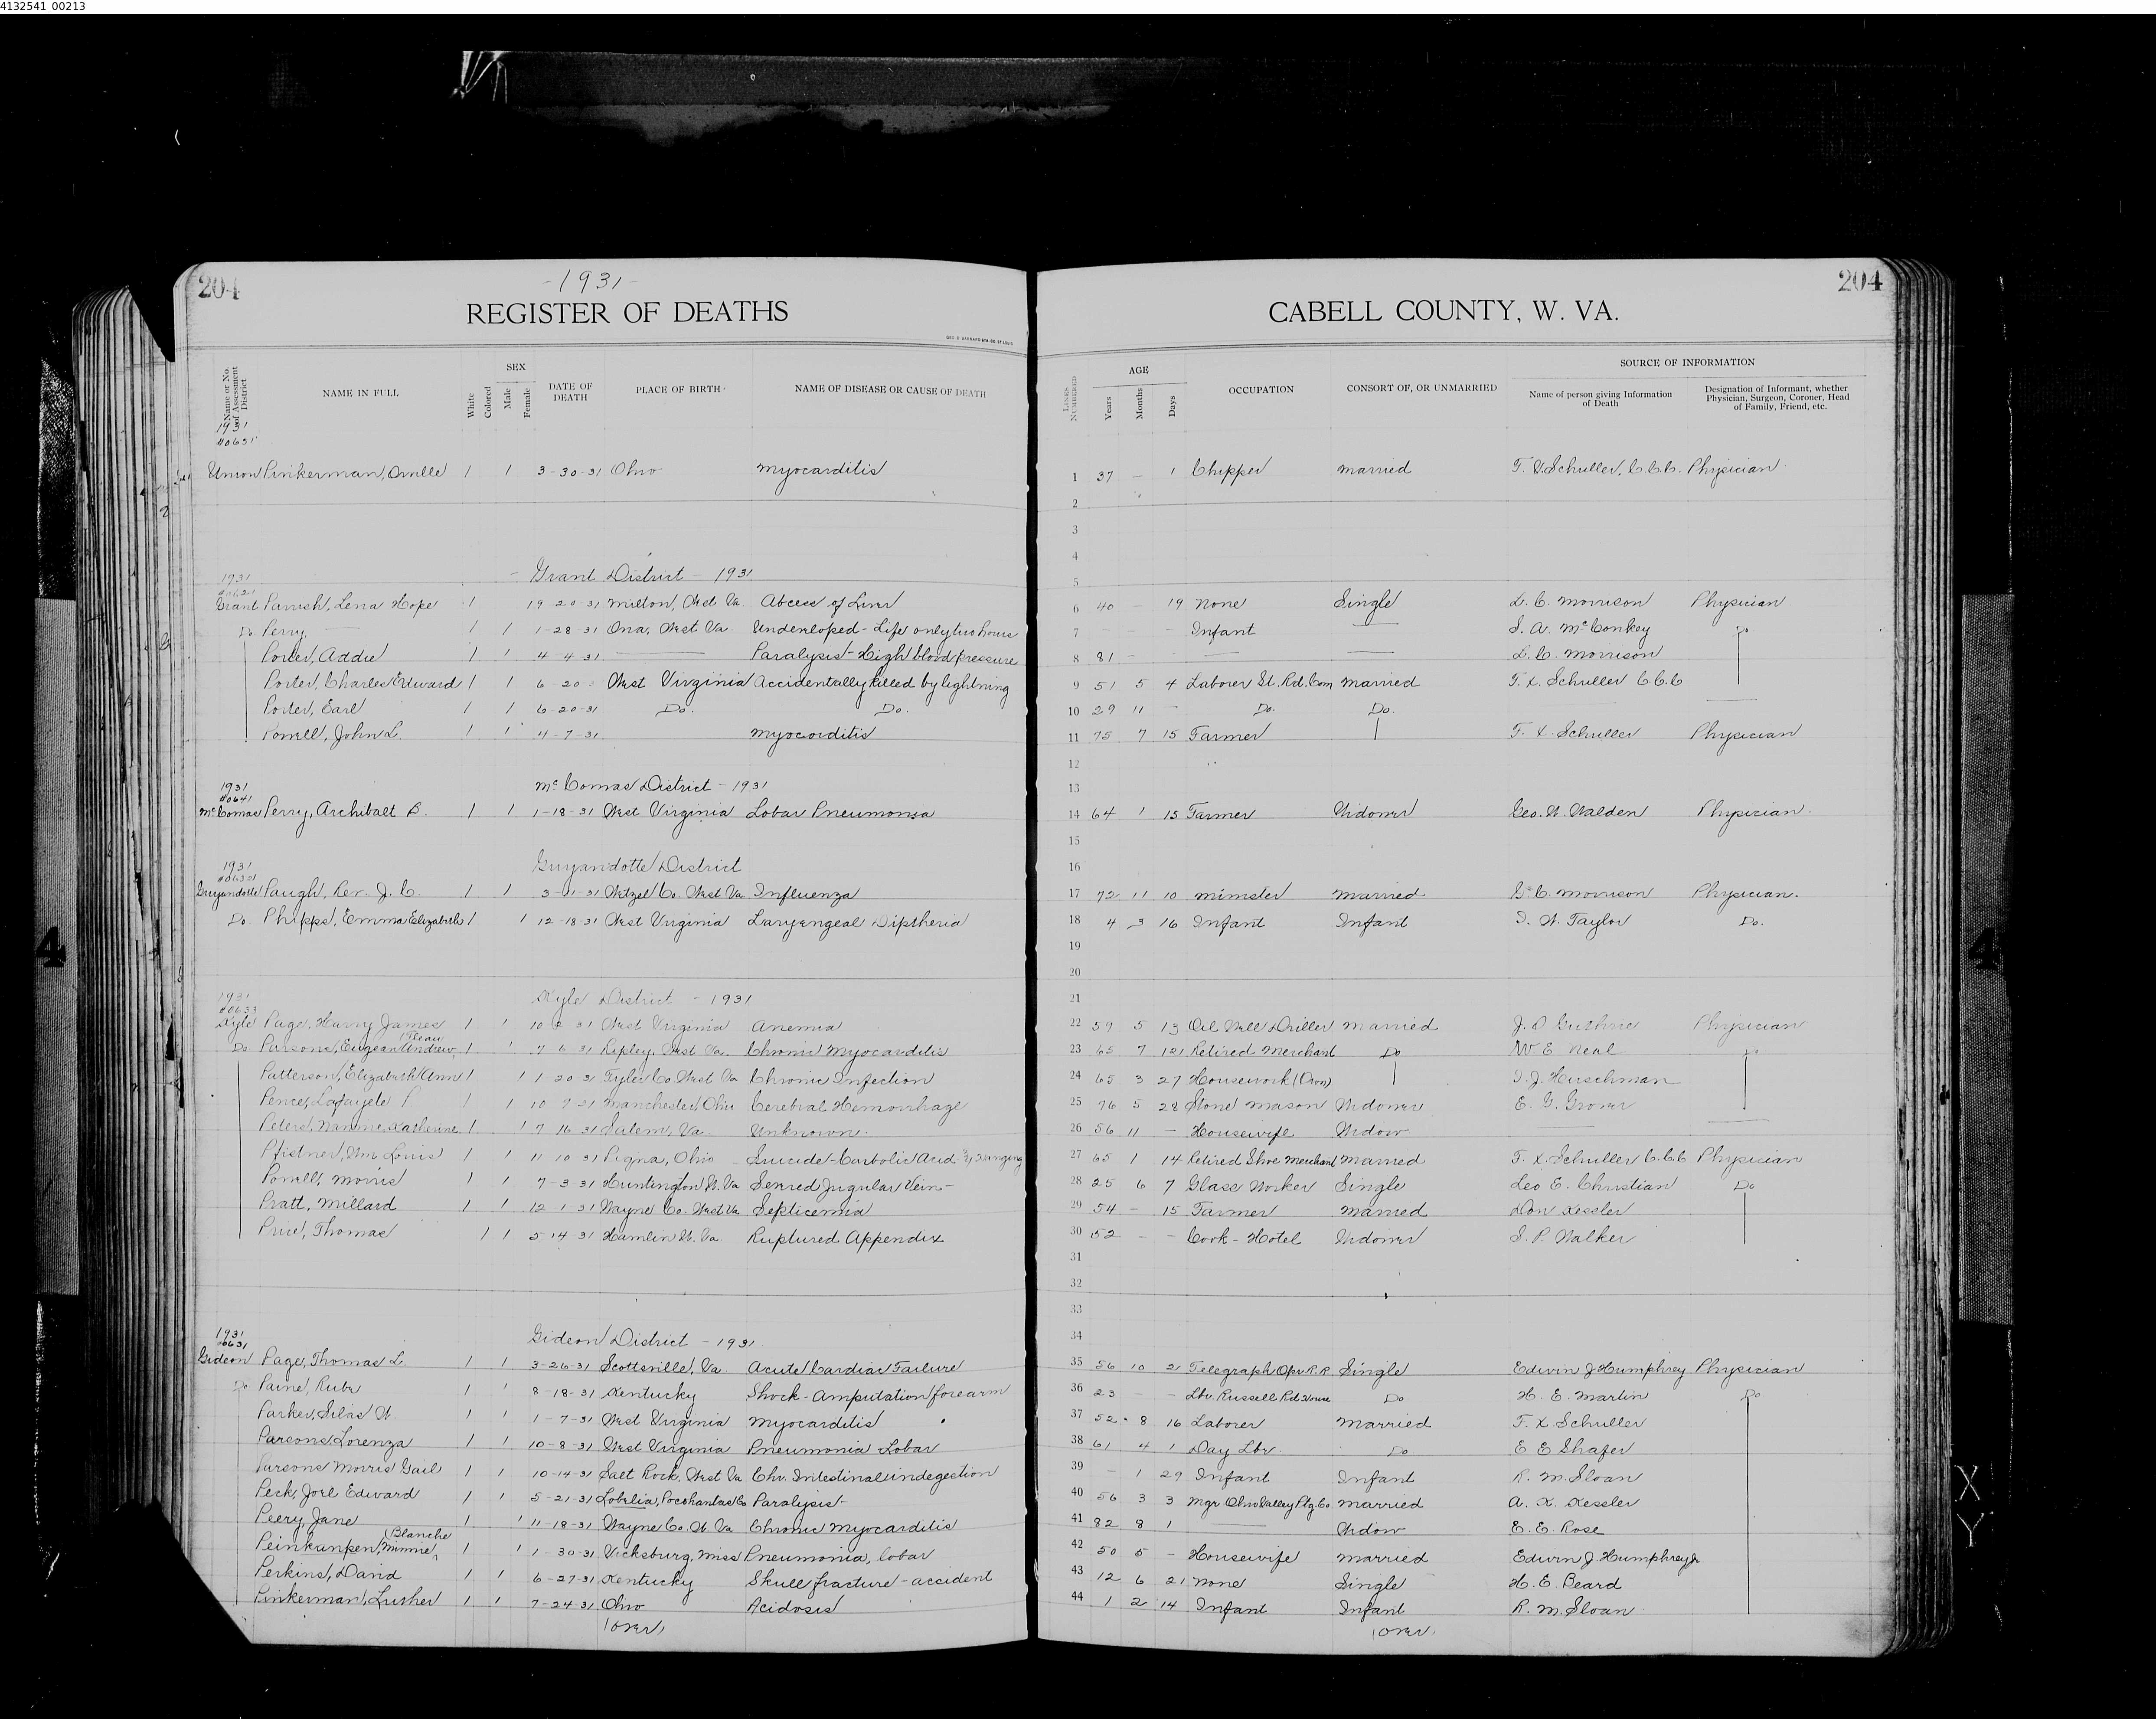 4132541_00213
204
-1931-
REGISTER OF DEATHS
CABELL COUNTY, W. VA.
204
Name or No. of Assessment District
NAME IN FULL
White
Colored
SEX
Male
Female
DATE OF DEATH
PLACE OF BIRTH
NAME OF DISEASE OR CAUSE OF DEATH
LINES NUMBERED
AGE
Years
Months
Days
OCCUPATION
CONSORT OF, OR UNMARRIED
SOURCE OF INFORMATION
Name of person giving Information of Death
Designation of Informant, whether Physician, Surgeon, Coroner, Head of Family, Friend, etc.
1931
#0631
Union Pinkerman, Orville 1 1 3-30-31 Ohio Myocarditis 1 37 — 1 Chipper Married Schuller, C.C.C. Physician
2
3
4
1931 Grant District - 1931 5
Grant Parrish, Lena Hope 1 19 20 31 Milton, West Va. Abcess of Liver 6 40 — 19 None Single L. C. Morrison Physician
Do Perry, — 1 1 1-28-31 Ona, West Va Undeveloped - Life only two hours 7 — — — Infant — S. A. McConkey Do
Porter, Addie 1 1 4-4-31 — Paralysis - High blood pressure 8 81 — — — — L. C. Morrison
Porter, Charles Edward 1 1 6-20 West Virginia Accidentally killed by lightning 9 51 5 4 Laborer St. Rd. Com Married F. X. Schuller C.C.C
Porter, Earl 1 1 6-20-31 Do. Do. 10 29 11 — Do. Do. —
Powell, John L. 1 1 4-7-31 Myocorditis 11 75 7 15 Farmer F. X. Schuller Physician
12
1931 McComas District - 1931 13
#0641
McComas Perry, Archibalt B. 1 1 1-18-31 West Virginia Lobar Pneumonia 14 64 1 15 Farmer Widower Geo. W. Walden Physician.
15
1931 Guyandotte District 16
Guyandotte Paugh, Rev. J. C. 1 1 3-11-31 Wetzel Co. West Va Influenza 17 72 11 10 Minister Married C. Morrison Physician.
Do. Phipps, Emma Elizabeth 1 1 12-18-31 West Virginia Laryengeal Diptheria 18 4 3 16 Infant Infant I. W. Taylor Do.
19
20
1931 Kyle District - 1931 21
#0633
Kyle Page, Harry James 1 1 10 31 West Virginia Anemia 22 59 5 13 Oil Well Driller Married J. O Guthrie Physician
Do Parsons, Andrew 1 1 7 6 31 Ripley, West Va. Chronic Myocarditis 23 65 7 Retired Merchant Do W E Neal Do
Patterson, Elizabeth Ann 1 1 1 20 31 Tyler Co West Va Chronic Infection 24 65 3 27 Housework (Own) I. J. Hirschman
Pence, Lafayete P 1 1 10 9 31 Manchester, Ohio Cerebral Hemorrhage 25 76 5 28 Stone Mason Widower E. G. Grover
Peters, Nannie Katherine 1 1 7 16 31 Salem, Va. Unknown. 26 56 11 — Housewife Widow — —
Pfistner, Wm Louis 1 1 11 10 31 Piqna, Ohio Suicide - Carbolic Acid - Hanging 27 65 1 14 Retired Shoe Merchant Married F. X. Schuller C.C.C Physician
Powell, Morris 1 1 7-3-31 Huntington W. Va Severed Jugular Vein - 28 25 6 7 Glass Worker Single Leo E. Christian Do
Pratt, Millard 1 1 12 1 31 Wayne Co. West Va Septicemia 29 54 — 15 Farmer Married Don Kessler
Price, Thomas 1 1 5 14 31 Hamlin W. Va. Ruptured Appendix 30 52 — — Cook - Hotel Widower S. P. Walker
31
32
33
1931 Gideon District - 1931 34
0631
Gideon Page, Thomas L. 1 1 3-26-31 Scottsville, Va. Acute Cardiac Failure 35 56 10 2 Telegraph Opr. R.R. Single Edwin J Humphrey Physician
Do Paine, Rube 1 1 8-18-31 Kentucky Shock - Amputation forearm 36 23 — — Lbr. Russell Rd House Do H. E. Martin Do
Parker, Silas W. 1 1 1-7-31 West Virginia Myocarditis 37 52 8 16 Laborer Married F. X. Schuller
Parsons Lorenza 1 1 10-8-31 West Virginia Pneumonia Lobar 38 61 4 1 Day Lbr. Do E E Shafer
Parsons Morris Gail 1 1 10-14-31 Salt Rock, West Va Chr. Intestinal indegestion 39 — 1 29 Infant Infant R. M. Sloan
Peck, Joel Edward 1 1 5-21-31 Lobelia, Pocohantas Co Paralysis- 40 56 3 3 Mgr Ohio Valley Ptg. Co Married A. K. Kessler
Peery, Jane 1 1 11-18-31 Wayne Co. W. Va Chronic Myocarditis 41 82 8 1 — Widow E. E. Rose
Blanche
Peinkanpen, Minnie, 1 1 1-30-31 Vicksburg, Miss Pneumonia, lobar 42 50 5 — Housewife Married Edwin J. Humphrey
Perkins, David 1 1 6-27-31 Kentucky Skull fracture - accident 43 12 6 21 None Single H. E. Beard
Pinkerman, Lusher 1 1 7-24-31 Ohio Acidosis 44 1 2 14 Infant Infant R. M. Sloan
(over) (over)
4
4
X
Y